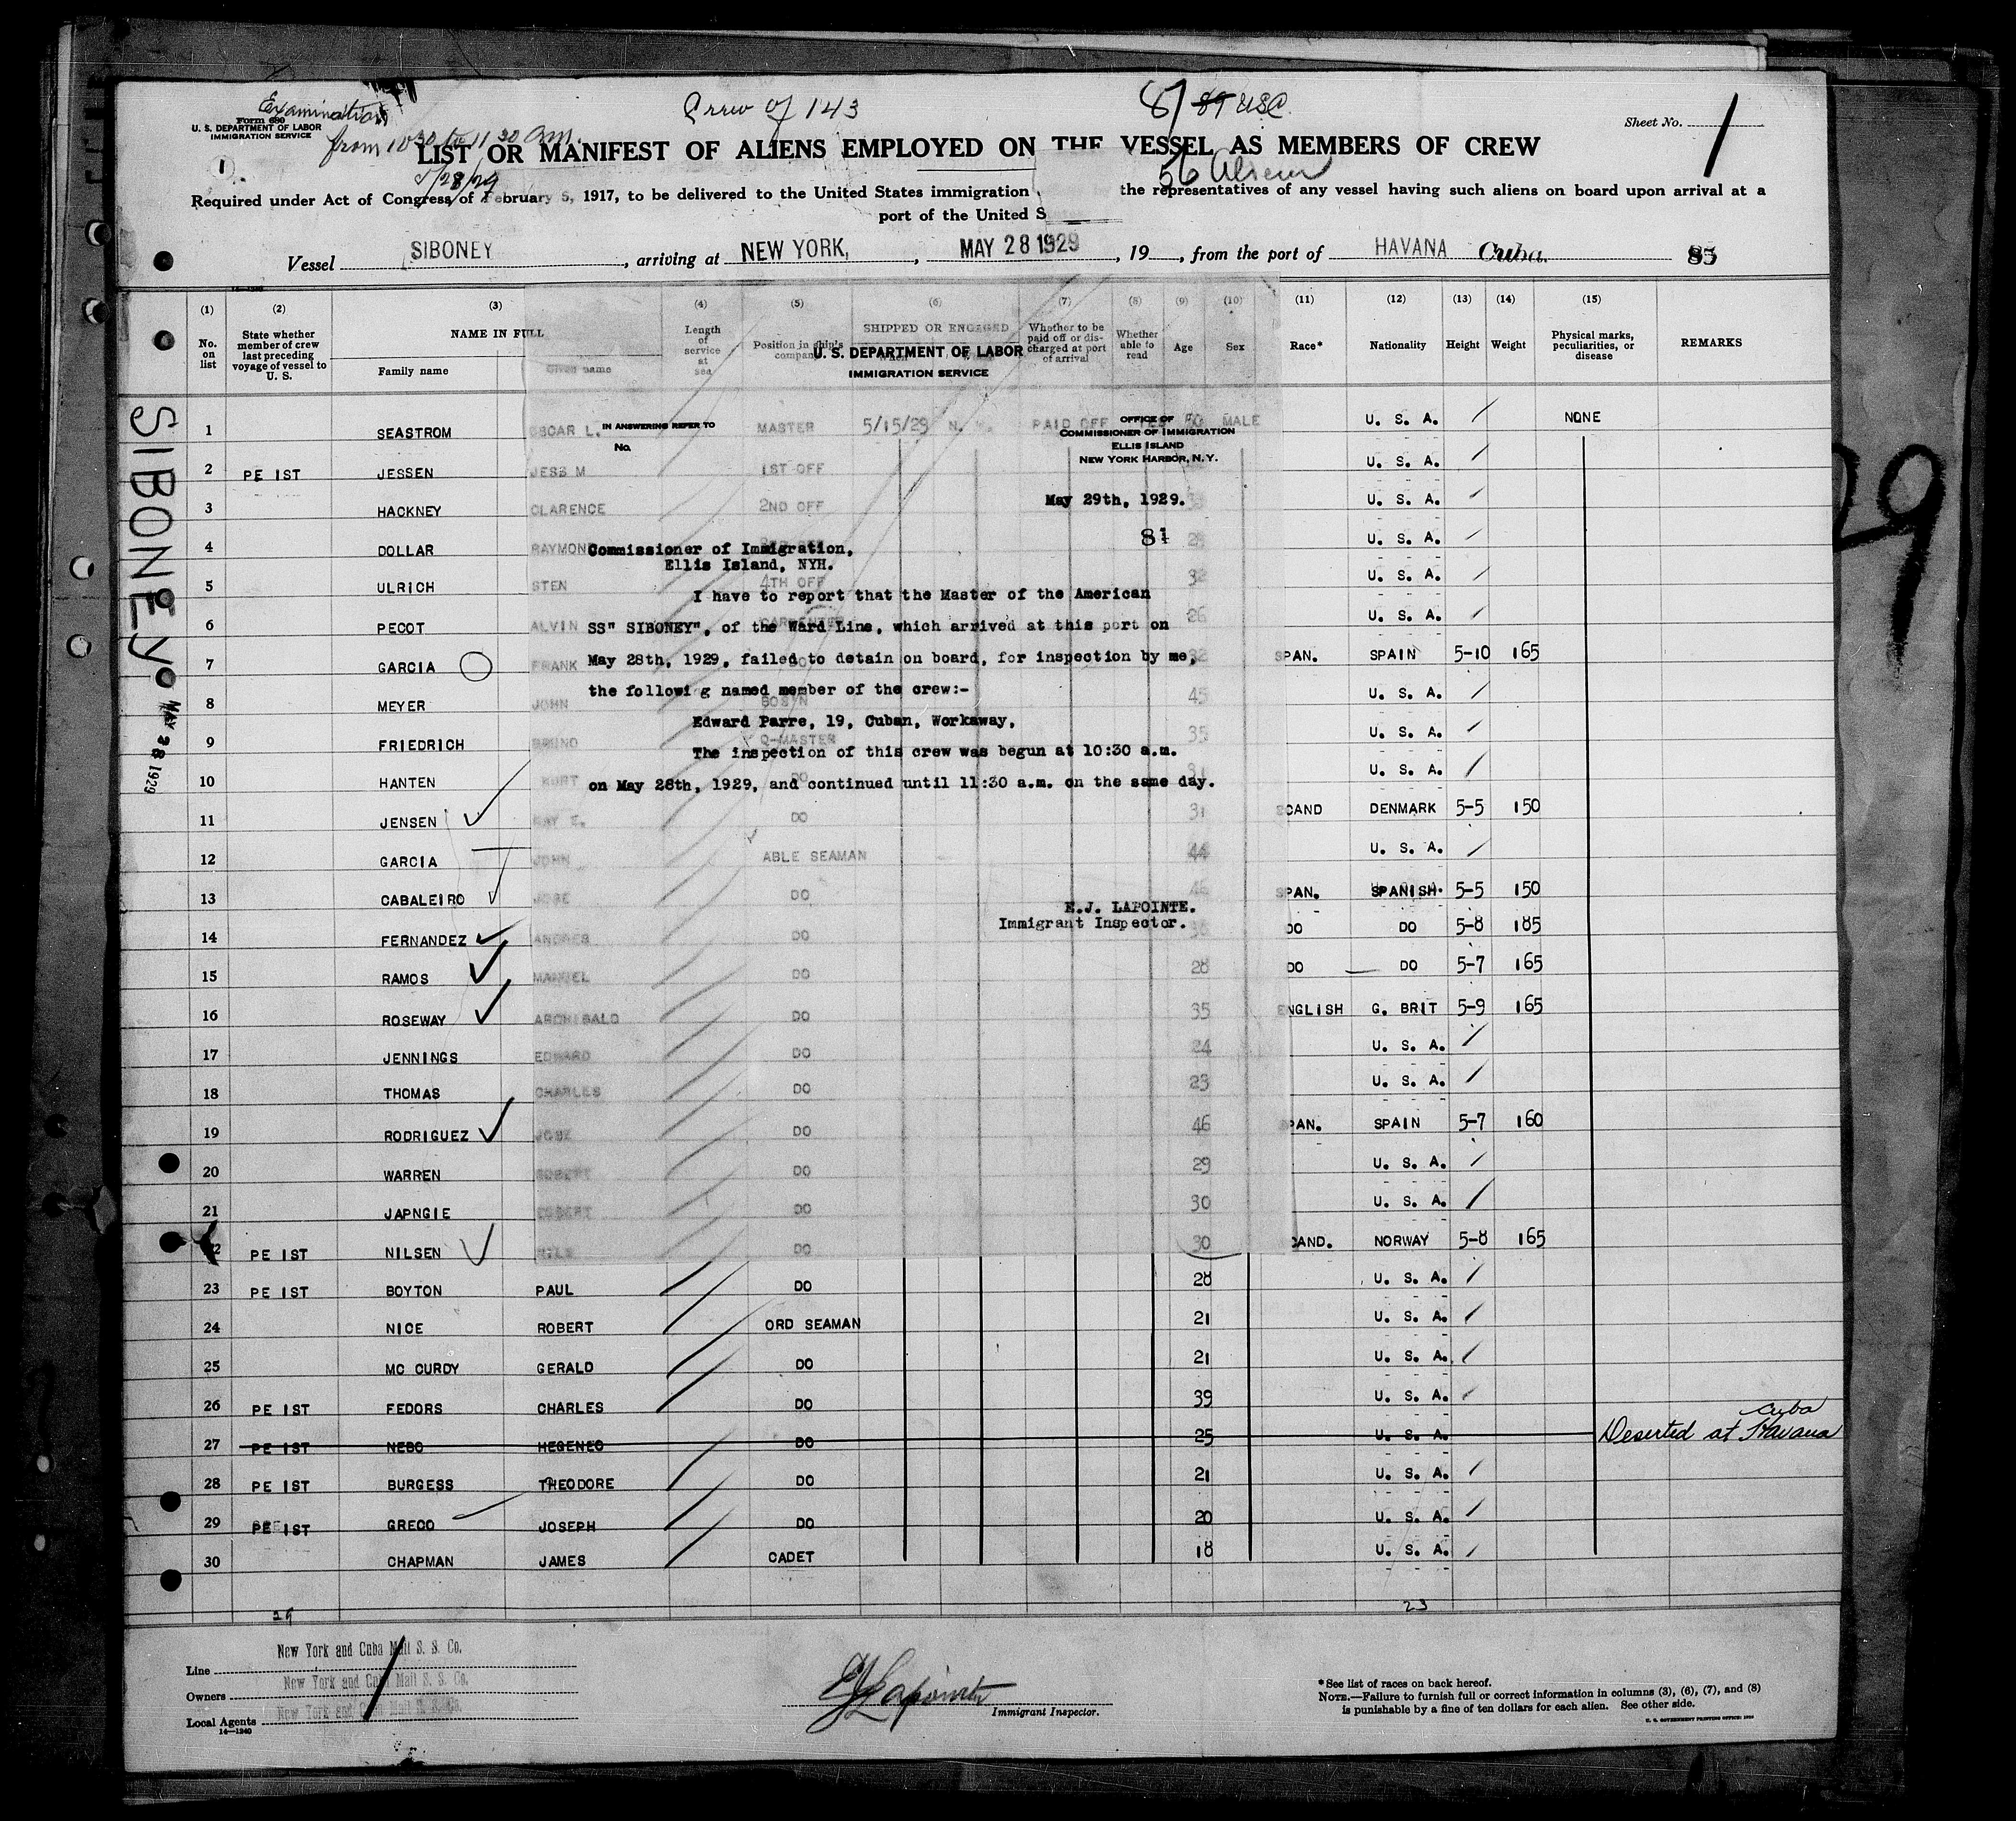 Examination
Form 680
U. S. DEPARTMENT OF LABOR
IMMIGRATION SERVICE
from 10 30 to 11 30 am.
5/28/29
1
Crew of 143
87 89 USC
56 Aliens
Sheet No. 1
LIST OR MANIFEST OF ALIENS EMPLOYED ON THE VESSEL AS MEMBERS OF CREW
Required under Act of Congress of February 5, 1917, to be delivered to the United States immigration the representatives of any vessel having such aliens on board upon arrival at a
port of the United S
Vessel SIBONEY, arriving at NEW YORK, MAY 28 1929, 19 , from the port of HAVANA Cuba. 85
(1) (2) (3) (4) (5) (6) (7) (8) (9) (10) (11) (12) (13) (14) (15)
No. on list
State whether member of crew last preceding voyage of vessel to U. S.
NAME IN FULL
Family name
Given name
Length of service at sea
Position in ship's company
SHIPPED OR ENGAGED
Whether to be paid off or discharged at port of arrival
Whether able to read
Age
Sex
Race*
Nationality
Height
Weight
Physical marks, peculiarities, or disease
REMARKS
U. S. DEPARTMENT OF LABOR
IMMIGRATION SERVICE
IN ANSWERING REFER TO
No.
OFFICE OF
COMMISSIONER OF IMMIGRATION
ELLIS ISLAND
NEW YORK HARBOR, N.Y.
May 29th, 1929.
81
Commissioner of Immigration,
Ellis Island, NYH.
I have to report that the Master of the American
SS" SIBONEY", of the Ward Line, which arrived at this port on
May 28th, 1929, failed to detain on board, for inspection by me,
the followi g named member of the crew:-
Edward Parre, 19, Cuban, Workaway,
The inspection of this crew was begun at 10:30 a.m.
on May 28th, 1929, and continued until 11:30 a.m. on the same day.
E.J. LAPOINTE.
Immigrant Inspector.
SIBONEY
MAY 28 1929
29
1 SEASTROM OSCAR L. MASTER 5/15/29 N. Y. PAID OFF YES 50 MALE U. S. A. NONE
2 PE IST JESSEN JESS M 1ST OFF U. S. A.
3 HACKNEY CLARENCE 2ND OFF U. S. A.
4 DOLLAR RAYMOND U. S. A.
5 ULRICH STEN 4TH OFF 32 U. S. A.
6 PECOT ALVIN CARPENTER 26 U. S. A.
7 GARCIA FRANK 32 SPAN. SPAIN 5-10 165
8 MEYER JOHN BOS'N 45 U. S. A.
9 FRIEDRICH BRUNO Q-MASTER 35 U. S. A.
10 HANTEN KURT DO U. S. A.
11 JENSEN KAY E. DO 31 SCAND DENMARK 5-5 150
12 GARCIA JOHN ABLE SEAMAN 44 U. S. A.
13 CABALEIRO JOSE DO SPAN. SPANISH. 5-5 150
14 FERNANDEZ ANDRES DO DO DO 5-8 185
15 RAMOS MANUEL DO 28 DO DO 5-7 165
16 ROSEWAY ARCHIBALD DO 35 ENGLISH G. BRIT 5-9 165
17 JENNINGS EDWARD DO 24 U. S. A.
18 THOMAS CHARLES DO 23 U. S. A.
19 RODRIGUEZ JOSE DO 46 SPAN. SPAIN 5-7 160
20 WARREN ROBERT DO 29 U. S. A.
21 JAPNGIE DO 30 U. S. A.
22 PE IST NILSEN NILS DO 30 SCAND. NORWAY 5-8 165
23 PE IST BOYTON PAUL DO 28 U. S. A.
24 NICE ROBERT ORD SEAMAN 21 U. S. A.
25 MC CURDY GERALD DO 21 U. S. A.
26 PE IST FEDORS CHARLES DO 39 U. S. A.
27 PE IST NEBO HEGENEO DO 25 U. S. A. Deserted at Havana Cuba
28 PE IST BURGESS THEODORE DO 21 U. S. A.
29 PE IST GRECO JOSEPH DO 20 U. S. A.
30 CHAPMAN JAMES CADET 18 U. S. A.
29
23
Line New York and Cuba Mail S. S. Co.
Owners New York and Cuba Mail S. S. Co.
Local Agents New York and Cuba Mail S. S. Co.
14—1240
EJ Lapointe
Immigrant Inspector.
*See list of races on back hereof.
NOTE.—Failure to furnish full or correct information in columns (3), (6), (7), and (8)
is punishable by a fine of ten dollars for each alien. See other side.